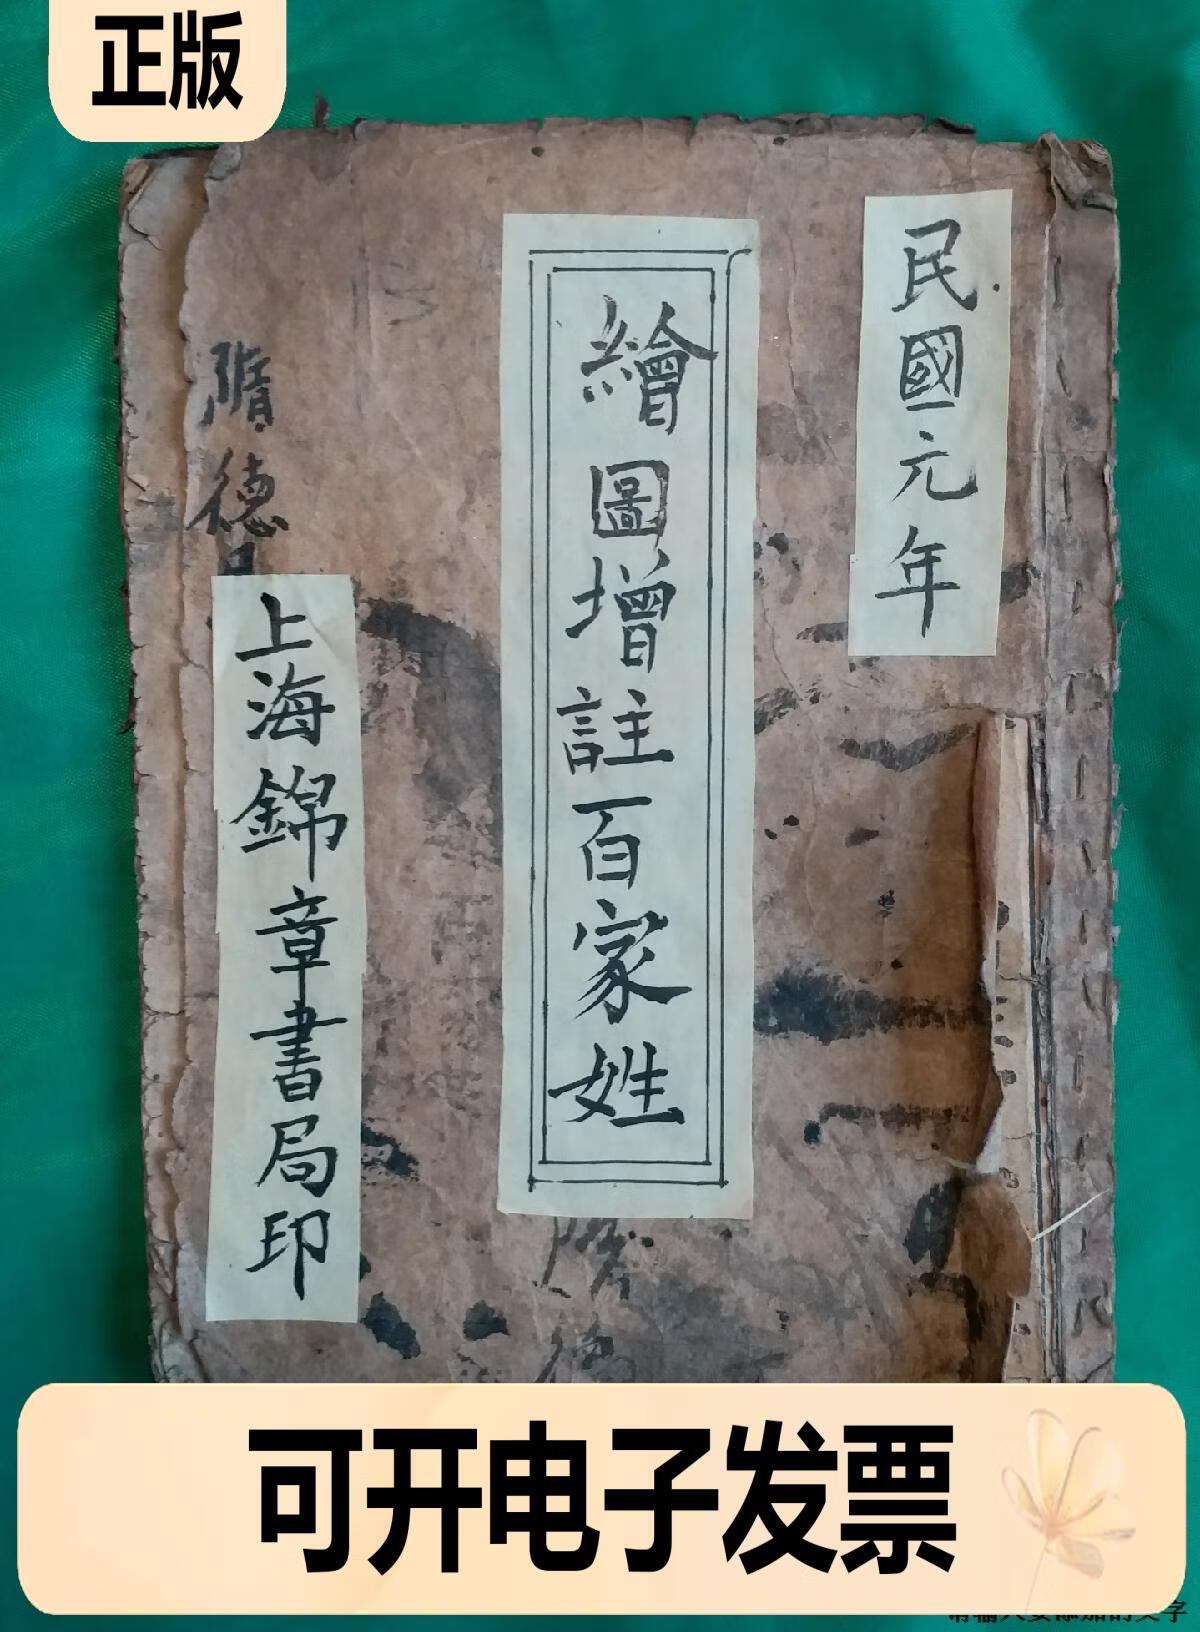 正版
民國元年
繪圖增註百家姓
隋德
上海錦章書局印
可开电子发票